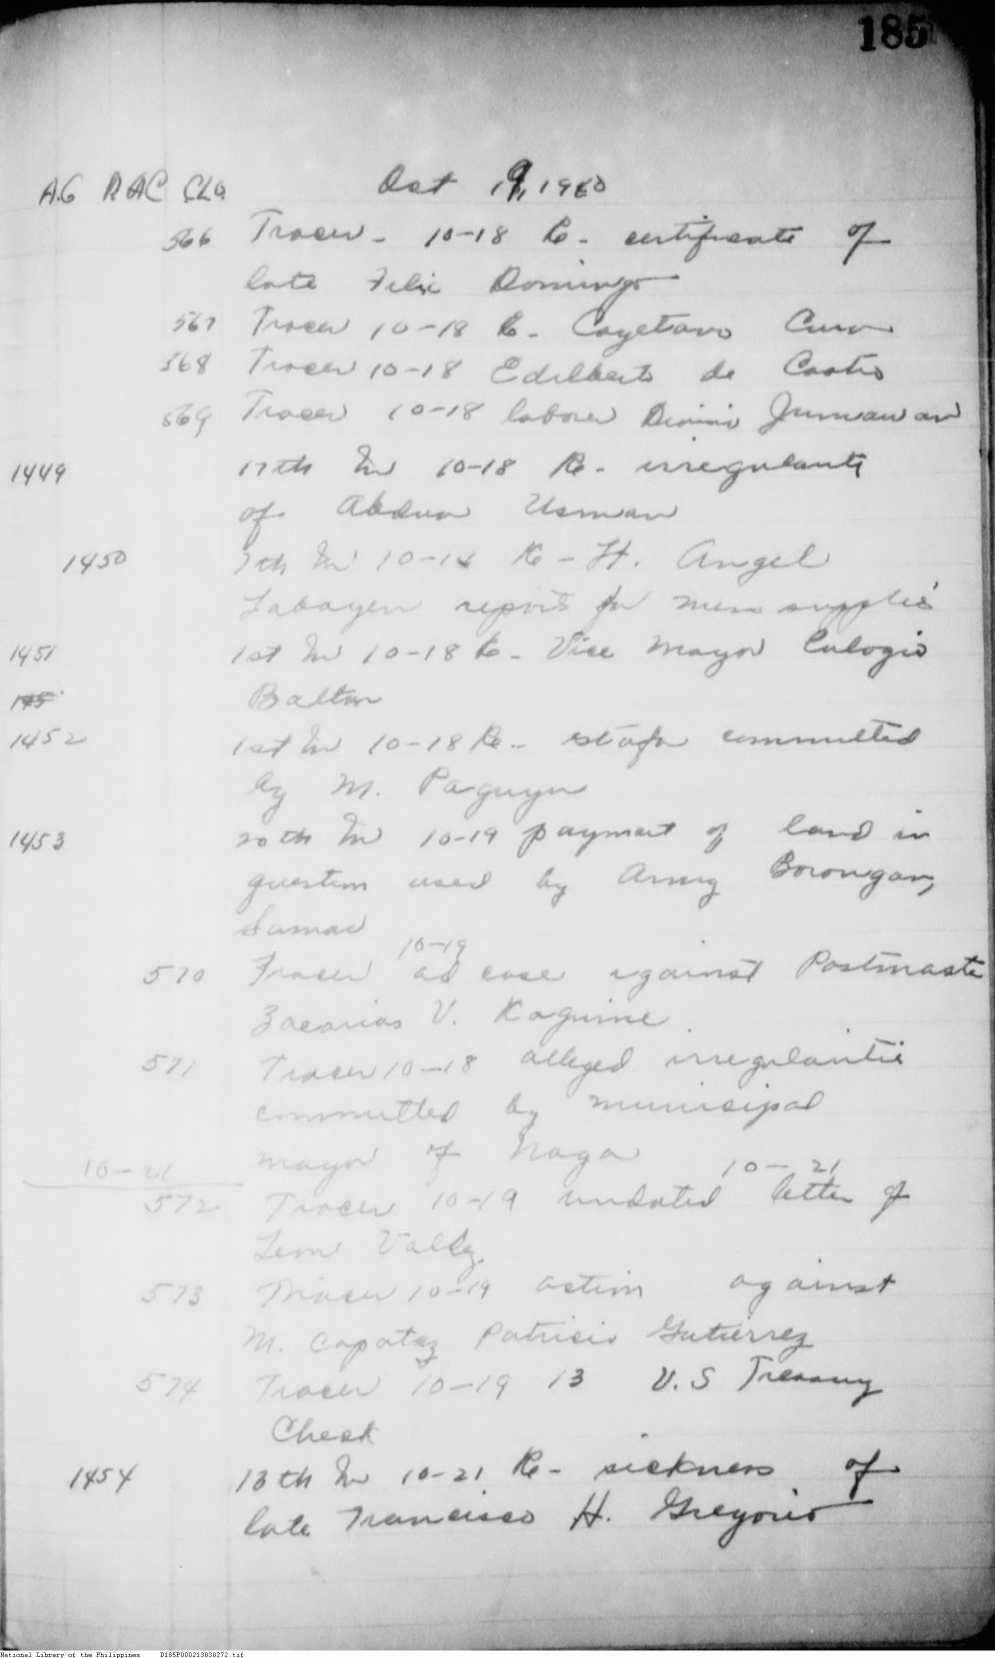 185
AG RAC CLO Oct 19, 1950
566 Tracer - 10-18 Re - certificate of
late Felix Domingo
567 Tracer 10-18 Re - Cayetano
568 Tracer 10-18 Edilberto de Castro
569 Tracer 10-18 laborer Jumawan
1449 17th Ind 10-18 Re - irregularity
of Abdua Usman
1450 7th Ind 10-14 Re - H. Angel
Labayen reports for supplies
1451 1st Ind 10-18 Re - Vice Mayor Eulogio
145 Baltar
1452 1st Ind 10-18 Re - estafa committed
by M. Paguyu
1453 20th Ind 10-19 payment of land in
question used by Army Borongan,
Samar
10-19
570 Tracer ad case against Postmaste
Zacarias V. Kaguine
571 Tracer 10-18 alleged irregularitie
committed by municipal
mayor of Naga
10-21 10-21
572 Tracer 10-19 undated letter of
Leon Valdez
573 Tracer 10-19 action against
M. Capataz Patricio Gutierrez
574 Tracer 10-19 13 U.S Treasury
Check
1454 13th Ind 10-21 Re - sickness of
late Francisco H. Gregorio
National Library of the Philippines D185P000213838272.tif